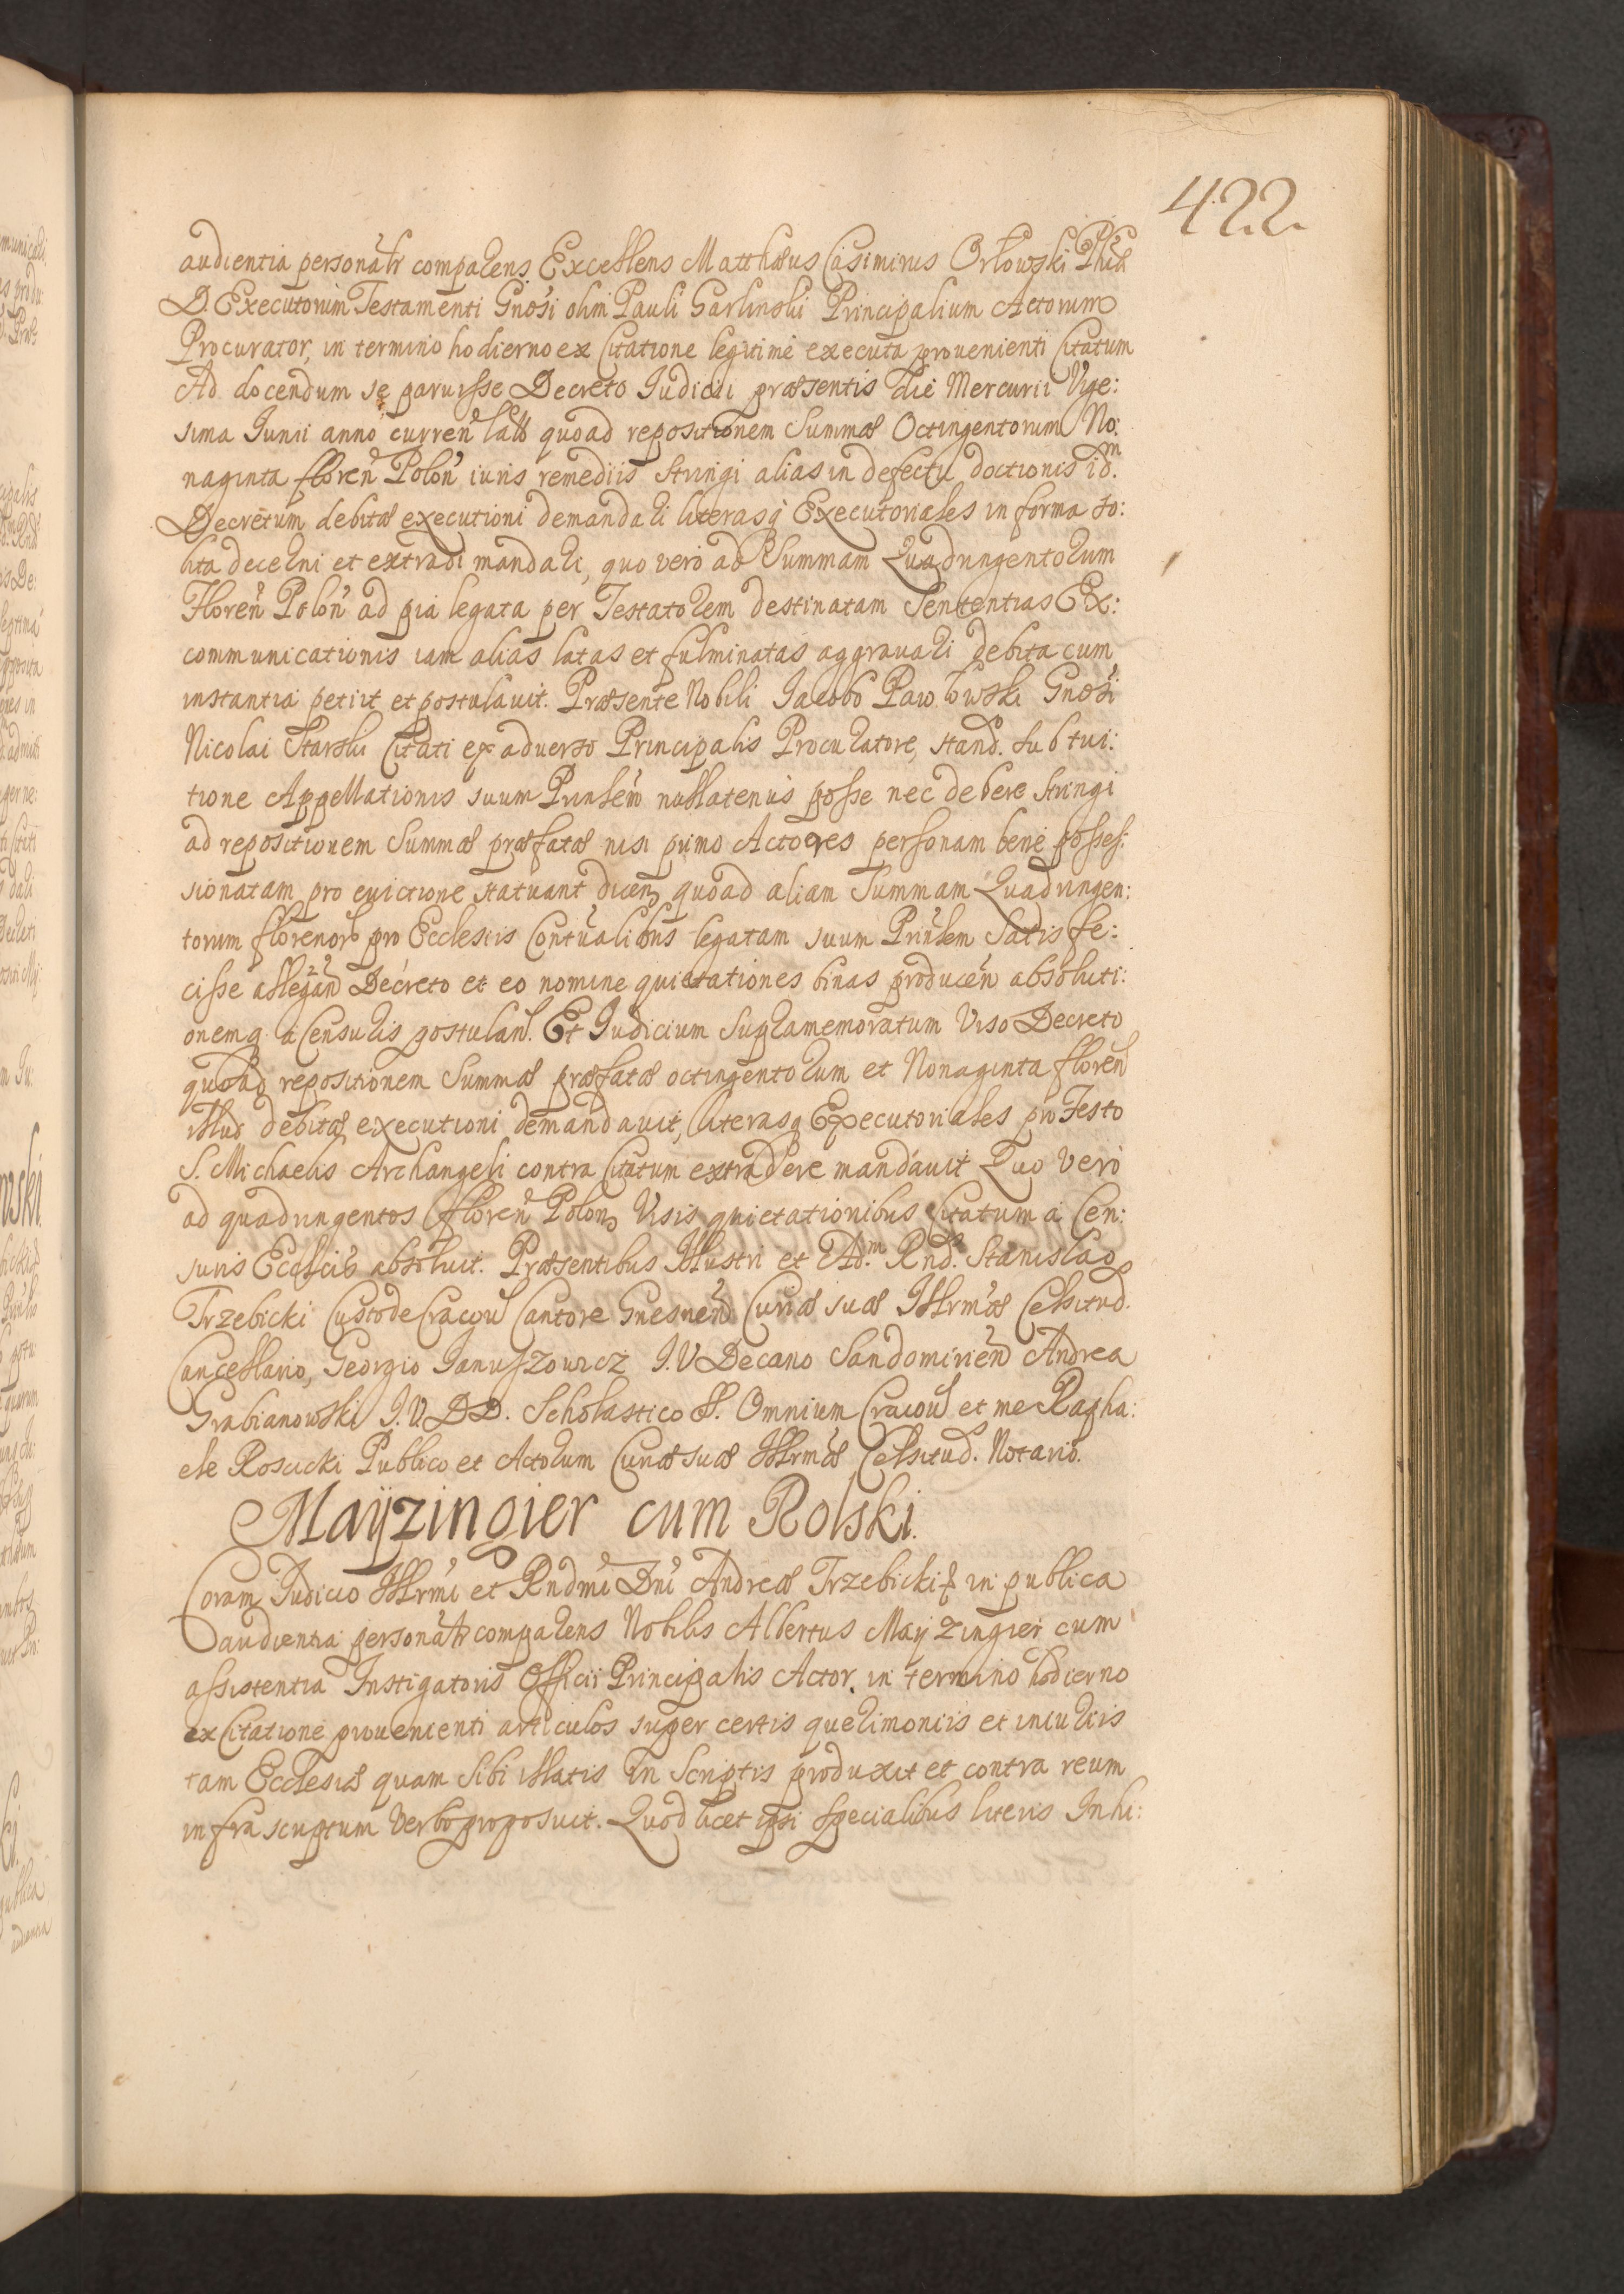 422.
audientia personalr comparens Excellens Matthæus Casimirus Orłowski Phiæ
D. Executorum Testamenti Gnosi olim Pauli Garlinski Principalium Actorum
Procurator, in termino hodierno ex Citatione legitime executa provenienti Citatum
Ad docendum se paruisse Decreto Iudicii præsentis die Mercurii Vige:
sima Iunii anno curren lato quoad repositionem Summæ Octingentorum No:
naginta floren Polon iuris remediis stringi alias in defectu doctionis id.m
Decretum debitæ executioni demandari literasq Executoriales in forma so:
lita decerni et extradi mandari, quo vero ad Summam Quadringentorum
Floren Polon ad pia legata per Testatorem destinatam Sententias Ex:
communicationis iam alias latas et fulminatas aggravari debita cum
instantia petiit et postulavit. Præsente Nobili Iacobo Pawłowski Gnosi
Nicolai Starski Citati ex adverso Principalis Procuratore, stand. sub tui:
tione Appellationis suum Prinlem nullatenus posse nec debere stringi
ad repositionem Summæ præfatæ nisi primo Actores personam bene posses:
sionatam pro evictione statuant dicen quoad aliam Summam Quadringen:
torum florenor pro Ecclesiis Contualibus legatam suum Prinlem Satis fe:
cisse allegan Decreto et eo nomine quietationes binas producen absoluti:
onemq a Censuris postulan. Et Iudicium Supramemoratum Viso Decreto
quoad repositionem Summæ præfatæ octingentorum et Nonaginta floren
illud debitæ executioni demandavit, literasq Executoriales pro Festo
S. Michaelis Archangeli contra Citatum extradere mandavit Quo vero
ad quadringentos floren Polon Visis quietationibus Citatum a Cen:
suris Ecclcis absoluit. Præsentibus Illustri et Ad.m Rnd. Stanislao
Trzebicki Custode Cracov Cantore Gnesnen Curiæ suæ Illrmæ Celsitud.
Cancellario, Georgio Ianuszowicz I. V Decano Sandomirien Andrea
Grabianowski I. V. DD. Scholastico SS. Omnium Cracov et me Rapha:
ele Roscicki Publico et Actorum Curiæ suæ Illrmæ Celsitud. Notario.
Mayzingier cum Rolski.
Coram Iudicio Illrmi et Rndmi Dni Andreæ Trzebicki & in publica
audientia personalr comparens Nobilis Albertus Mayzingier cum
assistentia Instigatoris Officii Principalis Actor. in termino hodierno
ex Citatione provenienti articulos super certis querimoniis et iniuriis
tam Ecclesiæ quam Sibi illatis in Scriptis produxit et contra reum
infrascriptum Verbo proposuit. Quod licet ipsi specialibus literis Inhi: